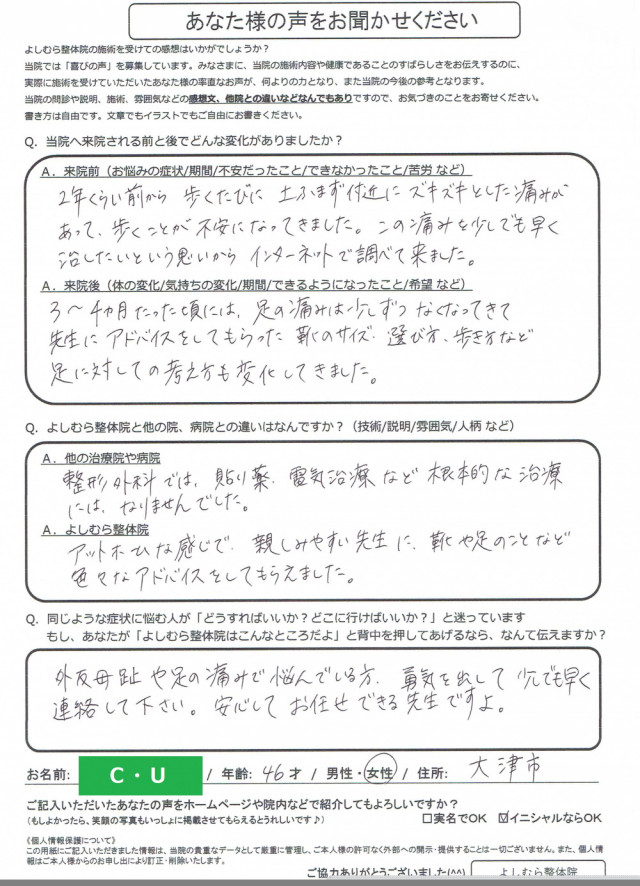 あなた様の声をお聞かせください
よしむら整体院の施術を受けての感想はいかがでしょうか?
当院では「喜びの声」を募集しています。みなさまに、当院の施術内容や健康であることのすばらしさをお伝えするのに、
実際に施術を受けていただいたあなた様の率直なお声が、何よりの力となり、また当院の今後の参考となります。
当院の問診や説明、施術、雰囲気などの感想文、他院との違いなどなんでもありですので、お気づきのことをお寄せください。
書き方は自由です。文章でもイラストでもご自由にお書きください。
Q. 当院へ来院される前と後でどんな変化がありましたか?
A. 来院前(お悩みの症状/期間/不安だったこと/できなかったこと/苦労 など)
2年くらい前から 歩くたびに 土ふまず付近に ズキズキとした痛みが
あって、歩くことが不安になってきました。この痛みを少しでも早く
治したいという思いから インターネットで調べて来ました。
A. 来院後(体の変化/気持ちの変化/期間/できるようになったこと/希望 など)
3〜4カ月たった頃には、足の痛みは少しずつ なくなってきて
先生に アドバイスをしてもらった 靴のサイズ、選び方、歩き方など
足に対しての考え方も変化してきました。
Q. よしむら整体院と他の院、病院との違いはなんですか?(技術/説明/雰囲気/人柄 など)
A. 他の治療院や病院
整形外科では、貼り薬、電気治療など 根本的な治療
には、なりませんでした。
A. よしむら整体院
アットホームな感じで、親しみやすい先生に、靴や足のことなど
色々なアドバイスをしてもらえました。
Q. 同じような症状に悩む人が「どうすればいいか?どこに行けばいいか?」と迷っています
もし、あなたが「よしむら整体院はこんなところだよ」と背中を押してあげるなら、なんて伝えますか?
外反母趾や足の痛みで悩んでいる方、勇気を出して 少しでも早く
連絡して下さい。安心して お任せできる先生ですよ。
お名前: C・U / 年齢: 46才 / 男性・女性 / 住所: 大津市
ご記入いただいたあなたの声をホームページや院内などで紹介してもよろしいですか?
(もしよかったら、笑顔の写真もいっしょに掲載させてもらえるとうれしいです♪) □実名でOK ☑イニシャルならOK
《個人情報保護について》
この用紙にご記入いただきました情報は、当院の貴重なデータとして厳重に管理し、ご本人様の許可なく外部への開示・提供することは一切ございません。また、個人情
報はご本人様からのお申し出により訂正・削除いたします。
ご協力ありがとうございました(^^) よしむら整体院